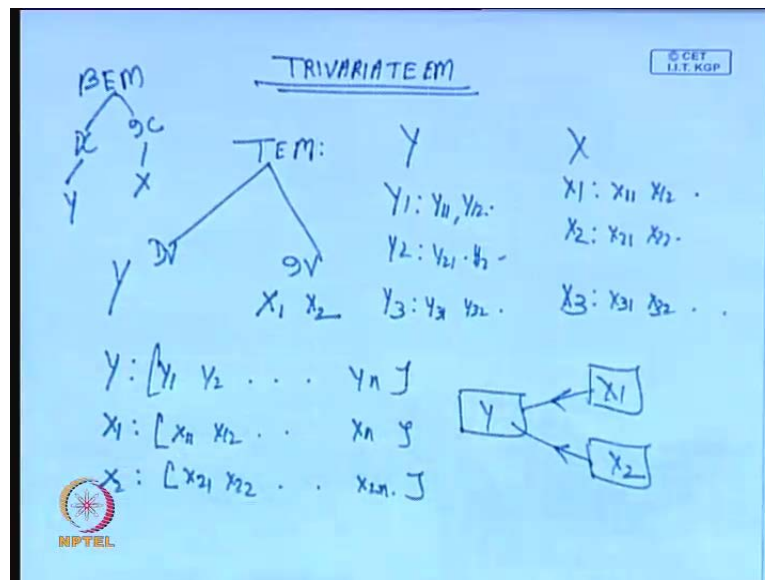 TRIVARIATE EM
© CET
I.I.T. KGP
BEM
DC IC
Y X
TEM:
DV IV
Y X1 X2
Y
Y1: Y11, Y12.
Y2: Y21 .
Y3: Y31 Y32 .
X
X1: X11 X12 .
X2: X21 X22 .
X3: X31 X32 . .
Y: [Y1 Y2 . . . Yn ]
X1: [X11 X12 . . Xn ]
X2: [X21 X22 . . X2n. ]
Y X1
X2
NPTEL